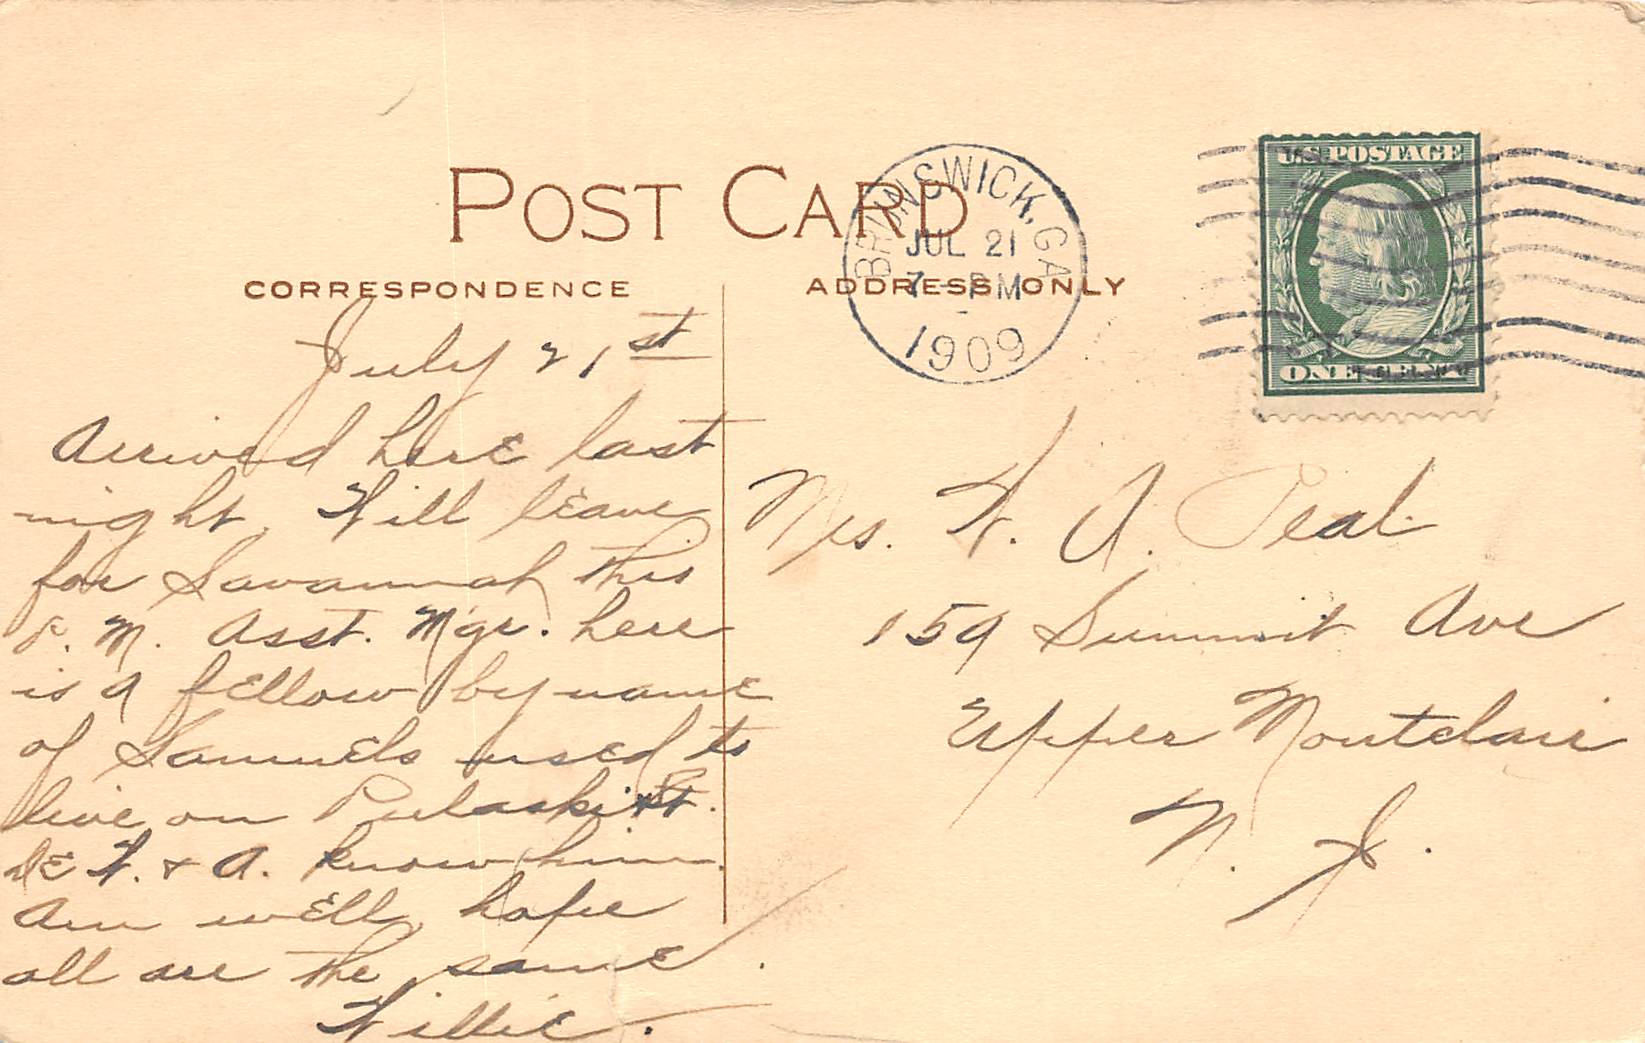 POST CARD
CORRESPONDENCE
ADDRESS ONLY
BRUNSWICK, GA
JUL 21
7 - PM
1909
U.S. POSTAGE
ONE CENT
July 21st
Arrived here last
night. Will leave
for Savannah this
P. M. Asst. Mgr. here
is a fellow by name
of Samuels used to
live on Pulaski St.
W. & A. know him.
Am well, hope
all are the same.
Willie.
Mrs. W. A. Teal
159 Summit Ave
Upper Montclair
N. J.